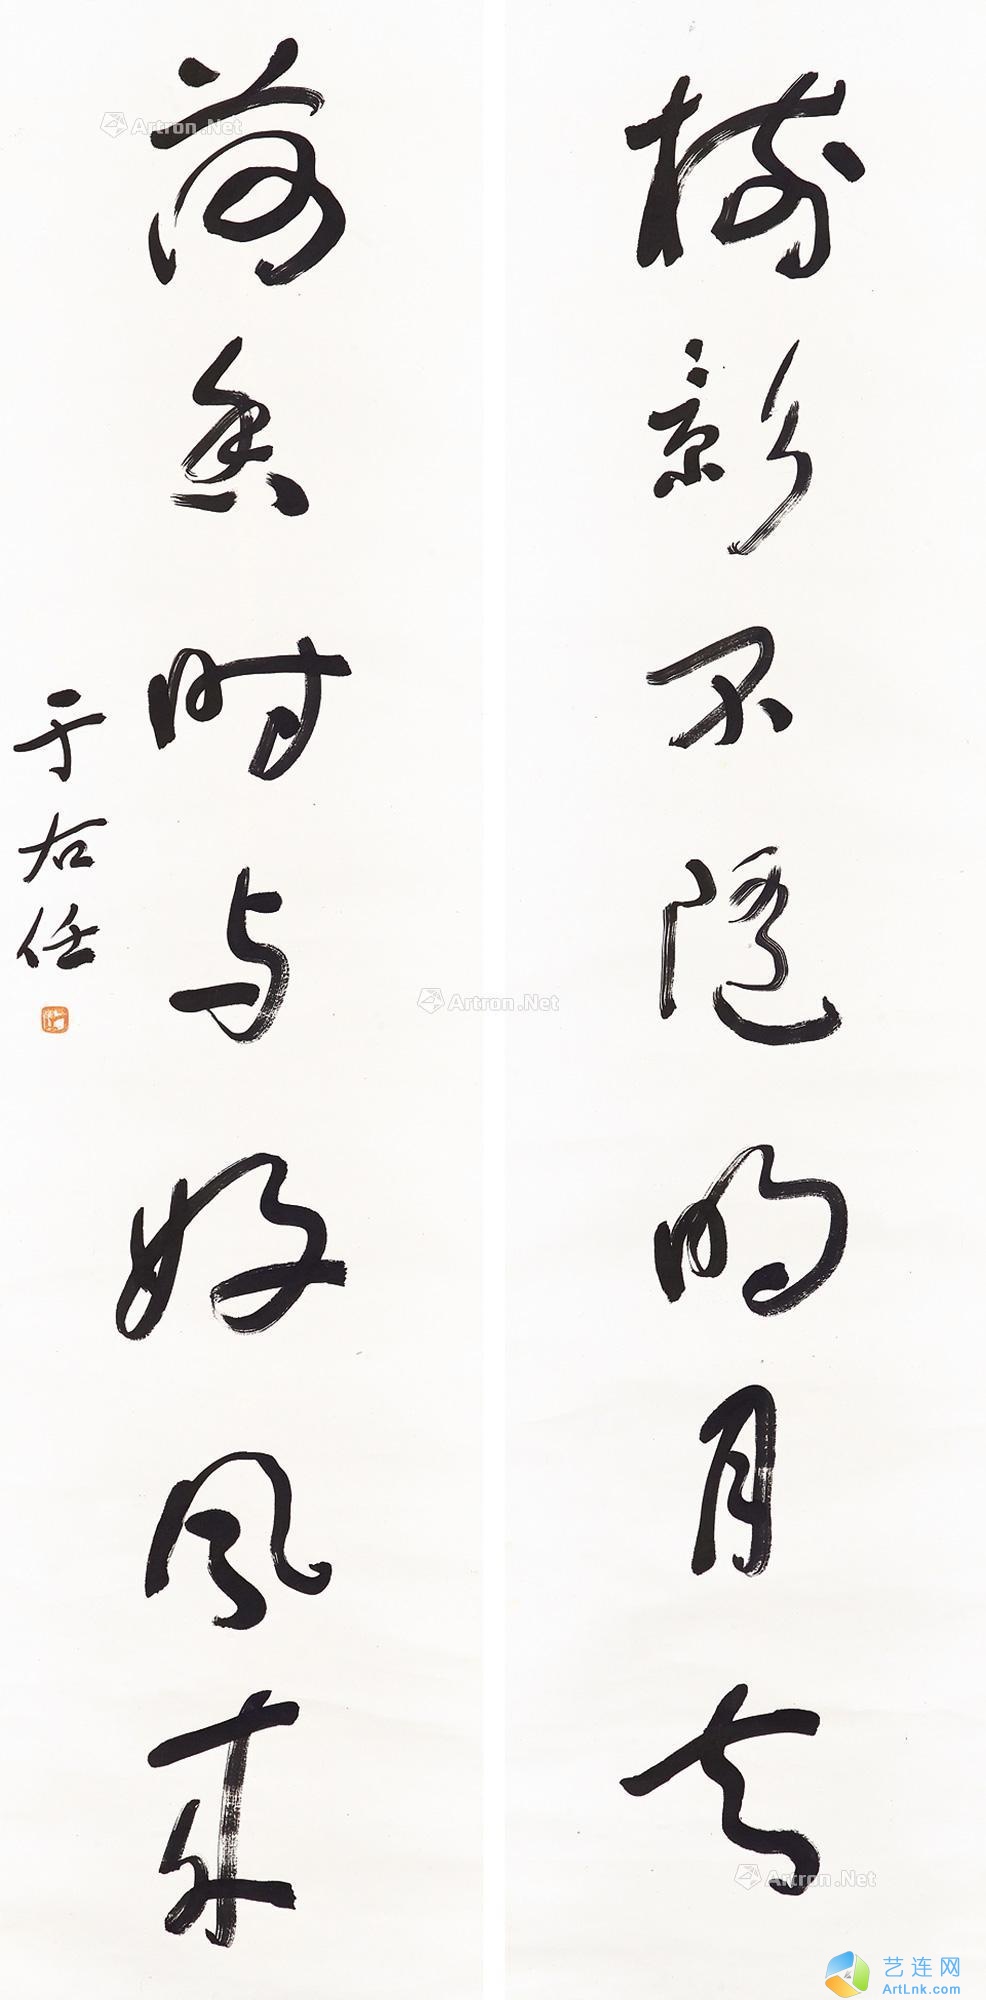 樹影不隨明月去
荷香時与好風来
于右任
Artron.Net
Artron.Net
Artron.Net
艺连网
ArtLnk.com